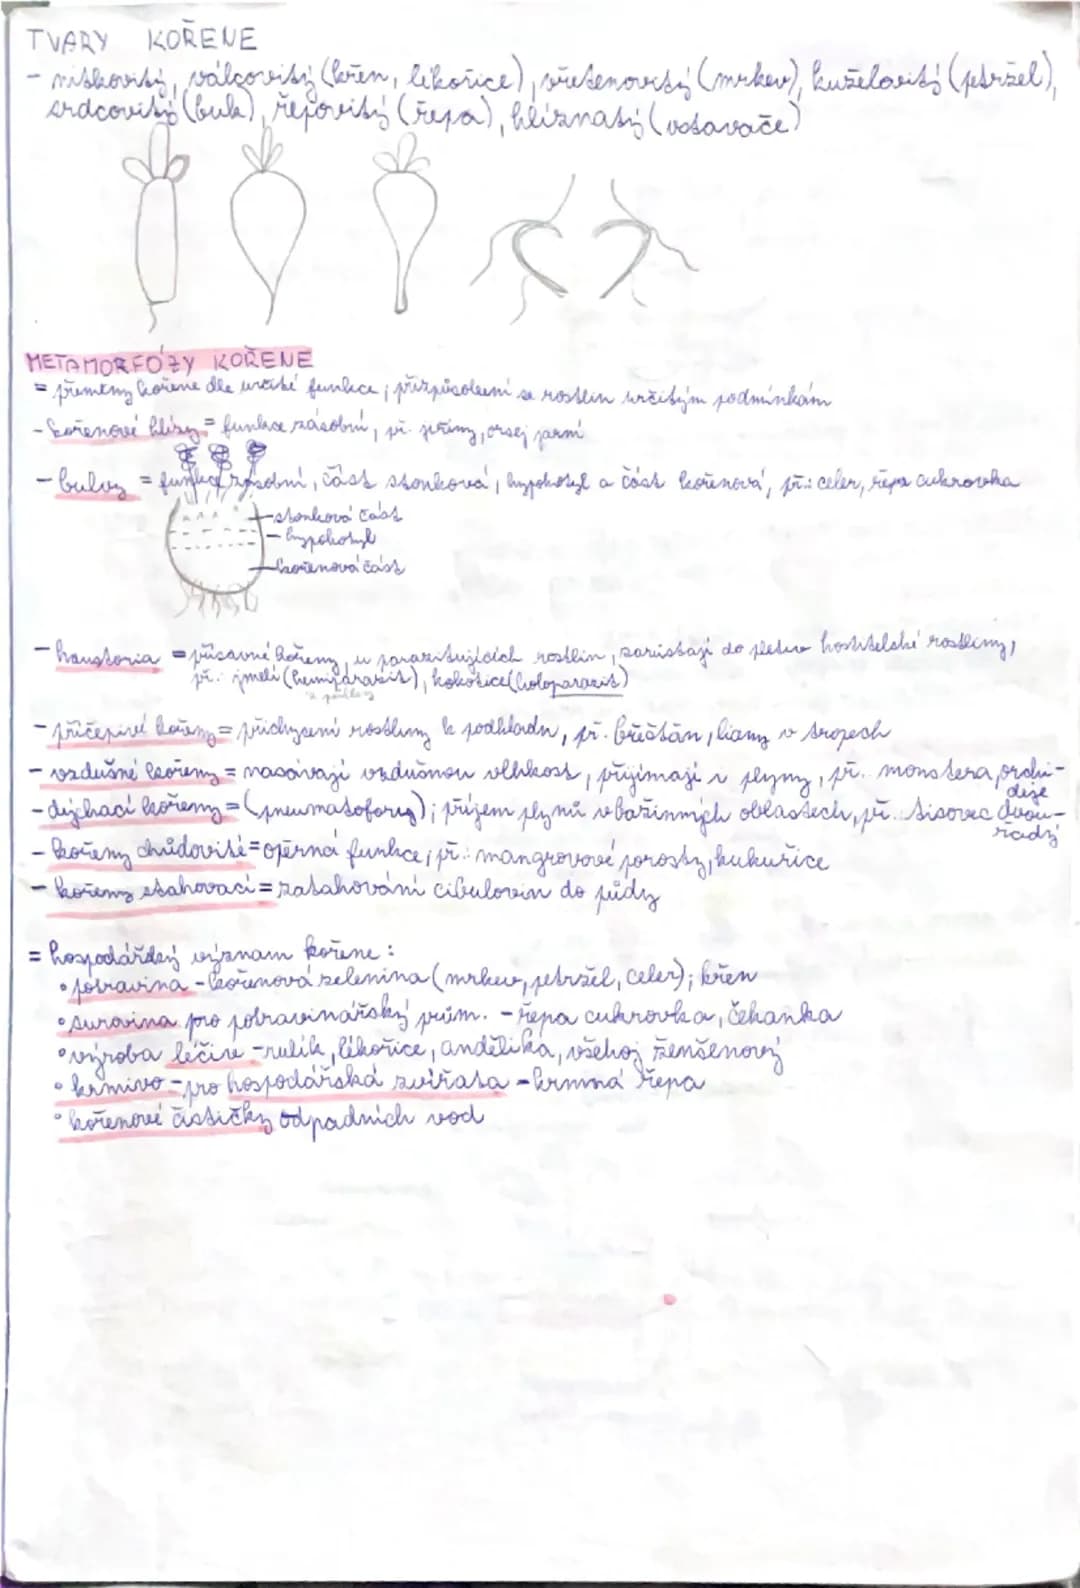 TVARY KOŘENE
- nitkovitý, válcovitý (křen, lékořice), vřetenovitý (mrkev), kuželovitý (petržel),
srdcovitý (buk), řepovitý (řepa), hlíznatý (vstavače)
METAMORFÓZY KOŘENE
= přeměny kořene dle určité funkce; přizpůsobení se rostlin určitým podmínkám
- kořenové hlízy = funkce zásobní, př. jiřiny, orsej jarní
- bulvy = funkce zásobní, část stonková, hypokotyl a část kořenová, př.: celer, řepa cukrovka
stonková část
- hypokotyl
kořenová část
- haustoria = přísavné kořeny, u parazitujících rostlin, zarůstají do pletiv hostitelské rostliny,
př.: jmelí (hemiparazit), kokotice (holoparazit)
- příčepivé kořeny = přichycení rostliny k podkladu, př. břečťan, liány v tropech
- vzdušné kořeny = nasávají vzdušnou vlhkost, přijímají i plyny, př. monstera, orchi-
deje
- dýchací kořeny = (pneumatofory); příjem plynů v bažinných oblastech, př.: tisovec dvou-
řadý
- kořeny chůdovité = opěrná funkce, př.: mangrovové porosty, kukuřice
- kořeny stahovací = zatahování cibulovin do půdy
= hospodářský význam kořene:
• potravina - kořenová zelenina (mrkev, petržel, celer); křen
• surovina pro potravinářský prům. - řepa cukrovka, čekanka
• výroba léčiv - rulík, lékořice, andělika, všehoj ženšenový
• krmivo - pro hospodářská zvířata - krmná řepa
• kořenové čističky odpadních vod